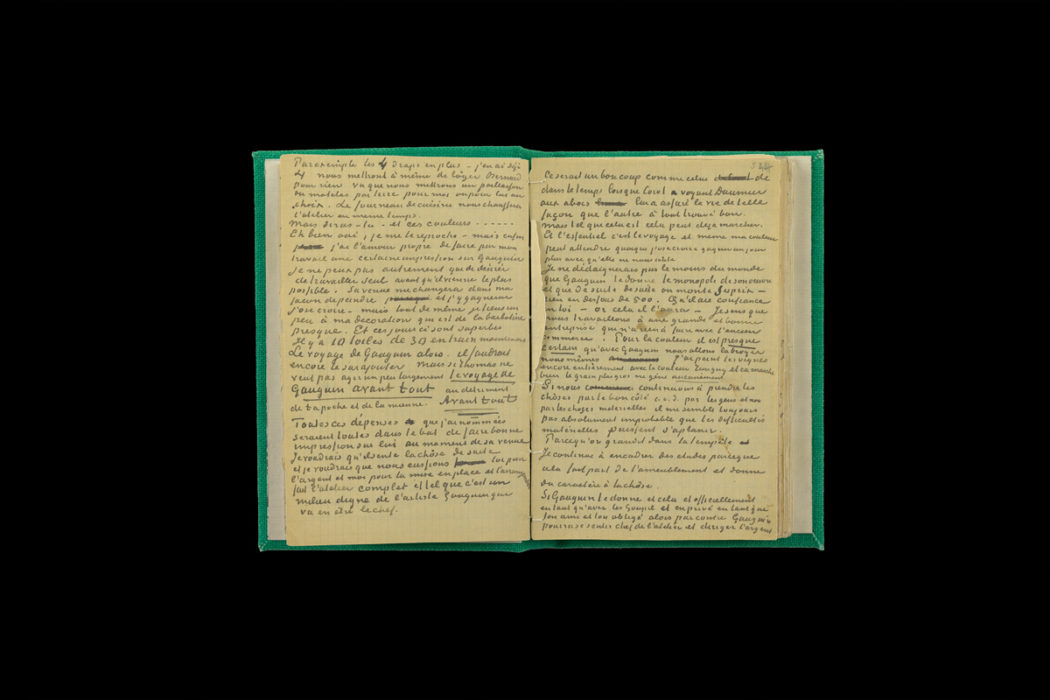 Par exemple les 4 draps en plus – j'en ai déjà
4 nous mettront à même de loger Bernard
pour rien vu que nous mettrons un paillasson
ou matelas par terre pour moi ou pour lui au
choix. Le fourneau de cuisine nous chauffera
l'atelier en même temps.
Mais diras-tu – et ces couleurs . . . . . .
Eh bien oui, je me le reproche – mais enfin
j'ai l'amour propre de faire par mon
travail une certaine impression sur Gauguin
je ne peux pas autrement que de désirer
de travailler seul avant qu'il vienne le plus
possible. Sa venue me changera dans ma
façon de peindre et j'y gagnerai
j'ose croire – mais tout de même je tiens un
peu à ma décoration qui est de la barbotine
presque. Et ces jours ci sont superbes
Il y a 10 toiles de 30 en train maintenant
Le voyage de Gauguin alors. il faudrait
encore le surajouter mais si Thomas ne
veut pas agir un peu largement le voyage de
Gauguin avant tout au détriment
de ta poche et de la mienne. Avant tout
Toutes ces dépenses que j'ai nommées
seraient toutes dans le but de faire bonne
impression sur lui au moment de sa venue
Je voudrais qu'il sente la chôse de suite
et je voudrais que nous eussions toi par
l'argent et moi par la mise en place et l'arrangement
fait l'atelier complet et tel que c'est un
milieu digne de l'artiste Gauguin qui
va en être le chef.
Ce serait un bon coup comme celui de
dans le temps lorsque Corot voyant Daumier
aux abois lui a assuré la vie de telle
façon que l'autre a tout trouvé bon.
Mais tel que cela est cela peut déjà marcher.
Et l'essentiel c'est le voyage et même ma couleur
peut attendre quoique j'ose croire gagner un jour
plus avec qu'elle ne nous coûte
Je ne dédaignerais pas le moins du monde
que Gauguin te donne le monopole de son œuvre
et que de suite de suite on monte ses prix –
rien en dessous de 500. Qu'il aie confiance
en toi – or cela il l'aura – Je sens que
nous travaillons à une grande et bonne
entreprise qui n'a rien à faire avec l'ancien
commerce. Pour la couleur il est presque
certain qu'avec Gauguin nous allons la broyer
nous mêmes J'ai peint les vignes
encore entièrement avec la couleur Tanguy et ca marche
bien le grain plus gros ne gêne aucunement
Si nous continuons à prendre les
chôses par le bon côté c.à.d. par les gens et non
par les choses materielles il me semble toujours
pas absolument improbable que les difficultés
materielles puissent s'aplanir.
Parcequ'on grandit dans la tempête
Je continue à encadrer des études parceque
cela fait part de l'ameublement et donne
du caractère à la chôse.
Si Gauguin te donne et cela et officiellement
en tant qu'avec les Goupil et en privé en tant que
son ami et ton obligé alors par contre Gauguin
pourra se sentir chef de l'atelier et diriger l'argent